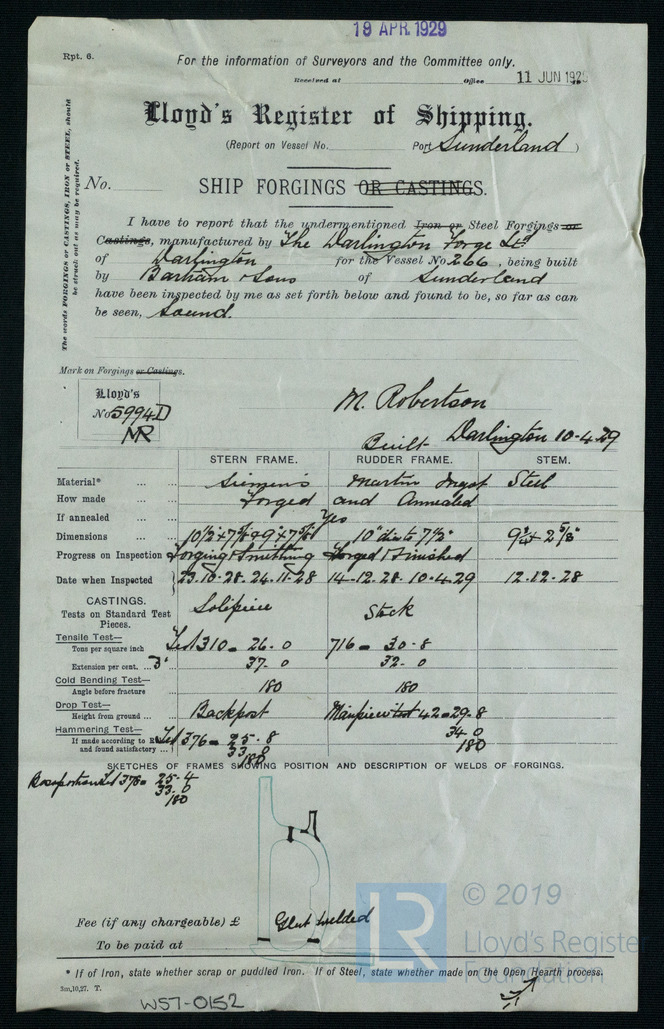 19 APR. 1929
Rpt. 6.
For the information of Surveyors and the Committee only.
Received at Office 11 JUN 1929
Lloyd's Register of Shipping.
(Report on Vessel No. Port Sunderland )
No.
SHIP FORGINGS OR CASTINGS.
The words FORGINGS or CASTINGS, IRON or STEEL, should be struck out as may be required.
I have to report that the undermentioned Iron or Steel Forgings or
Castings, manufactured by The Darlington Forge Ltd
of Darlington for the Vessel No. 266, being built
by Bartram & Sons of Sunderland
have been inspected by me as set forth below and found to be, so far as can
be seen, Sound.
Mark on Forgings or Castings.
Lloyd's
No 5994D
MR
M. Robertson
Built Darlington 10-4-29
STERN FRAME. RUDDER FRAME. STEM.
Material* ... ... Siemens Martin Ingot Steel
How made ... ... Forged and Annealed
If annealed ... ... Yes
Dimensions ... ... 10½"x7⅝"&9"x7⅝" 10" dia to 7½" 9¾" x 2⅝"
Progress on Inspection Forging & Smithing Forged & Finished
Date when Inspected 23.10.28. 24.11.28 14-12.28. 10.4.29 12.12-28
CASTINGS.
Tests on Standard Test Pieces.
Solepiece Stock
Tensile Test—
Tons per square inch Test 310 = 26.0 716 = 30.8
Extension per cent. ... 3" ... 37.0 32.0
Cold Bending Test—
Angle before fracture 180 180
Drop Test—
Height from ground ... ... Backpost Mainpiece test 42 = 29.8
Hammering Test— 34.0
If made according to Rules and found satisfactory ... Test 376 = 25.8 180
33.0
180
SKETCHES OF FRAMES SHOWING POSITION AND DESCRIPTION OF WELDS OF FORGINGS.
Test 378 = 25.4
33.0
180
Glut welded
Fee (if any chargeable) £
To be paid at
* If of Iron, state whether scrap or puddled Iron. If of Steel, state whether made on the Open Hearth process.
2m,10,27. T.
W57-0152
LR
© 2019
Lloyd's Register
Foundation